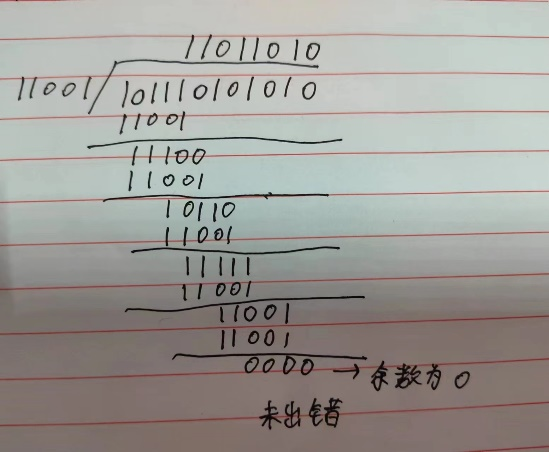 11011010
11001/101110101010
11001
11100
11001
10110
11001
11111
11001
11001
11001
0000 → 余数为 0
未出错